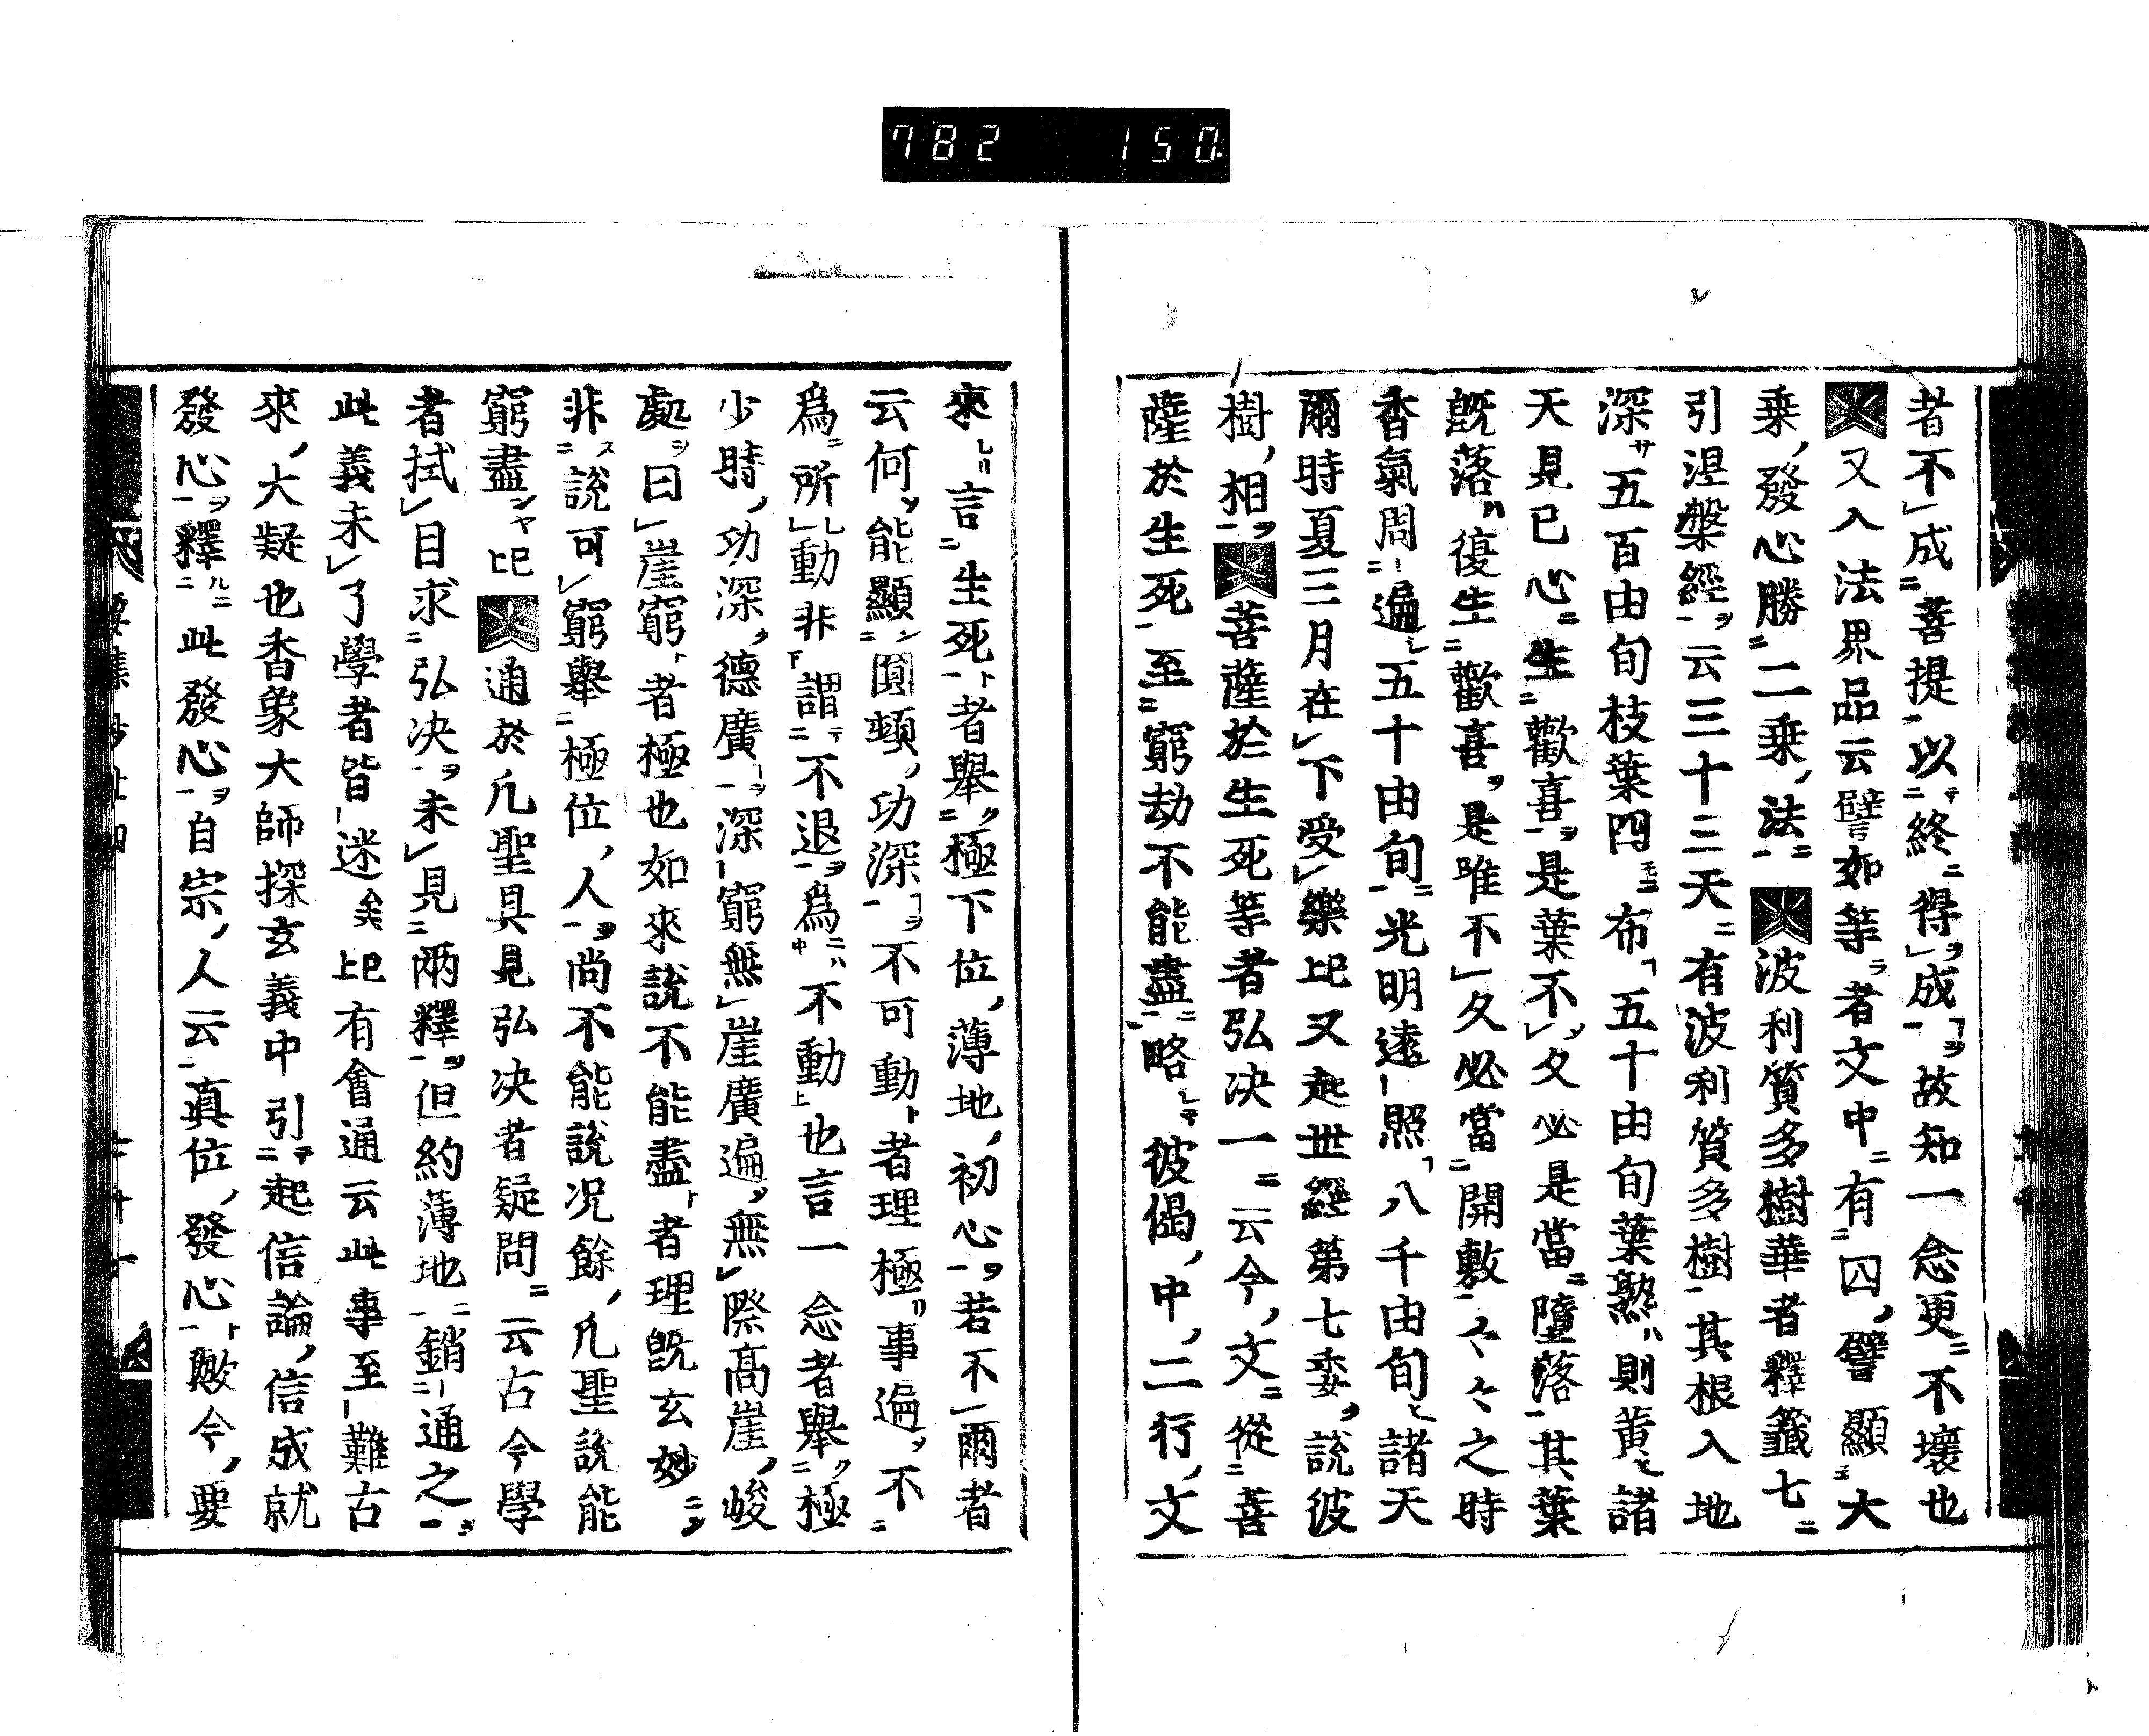 782 150.
者不成菩提以終得成故知一念更不壞也
又入法界品云譬如等者文中有四譬顯大
乗發心勝二乗法 波利質多樹華者釋籤七
引涅槃經云三十三天有波利質多樹其根入地
深五百由旬枝葉四布五十由旬葉熟則黄諸
天見已心生歡喜是葉不久必是當墮落其葉
既落復生歡喜是唯不久必當開敷々々々々之時
香氣周遍五十由旬光明遠照八千由旬諸天
爾時夏三月在下受樂㠯又起世經第七委說彼
樹相 菩薩於生死等者弘决一云今文從菩
薩於生死至窮劫不能盡略彼偈中二行文
來言生死者舉極下位薄地初心若不爾者
云何能顯圓頓功深不可動者理極事遍不
爲所動非謂不退爲不動也言一念者舉極
少時功深德廣深窮無崖廣遍無際高崖峻
處曰崖窮者極也如來說不能盡者理既玄妙
非說可窮舉極位人尚不能說况餘凡聖說能
窮盡㠯 通於凡聖具見弘决者疑問云古今學
者拭目求弘决未見兩釋但約薄地銷通之
此義未了學者皆迷矣㠯有會通云此事至難古
來大疑也香象大師探玄義中引起信論信成就
發心釋此發心自宗人云真位發心歟今要